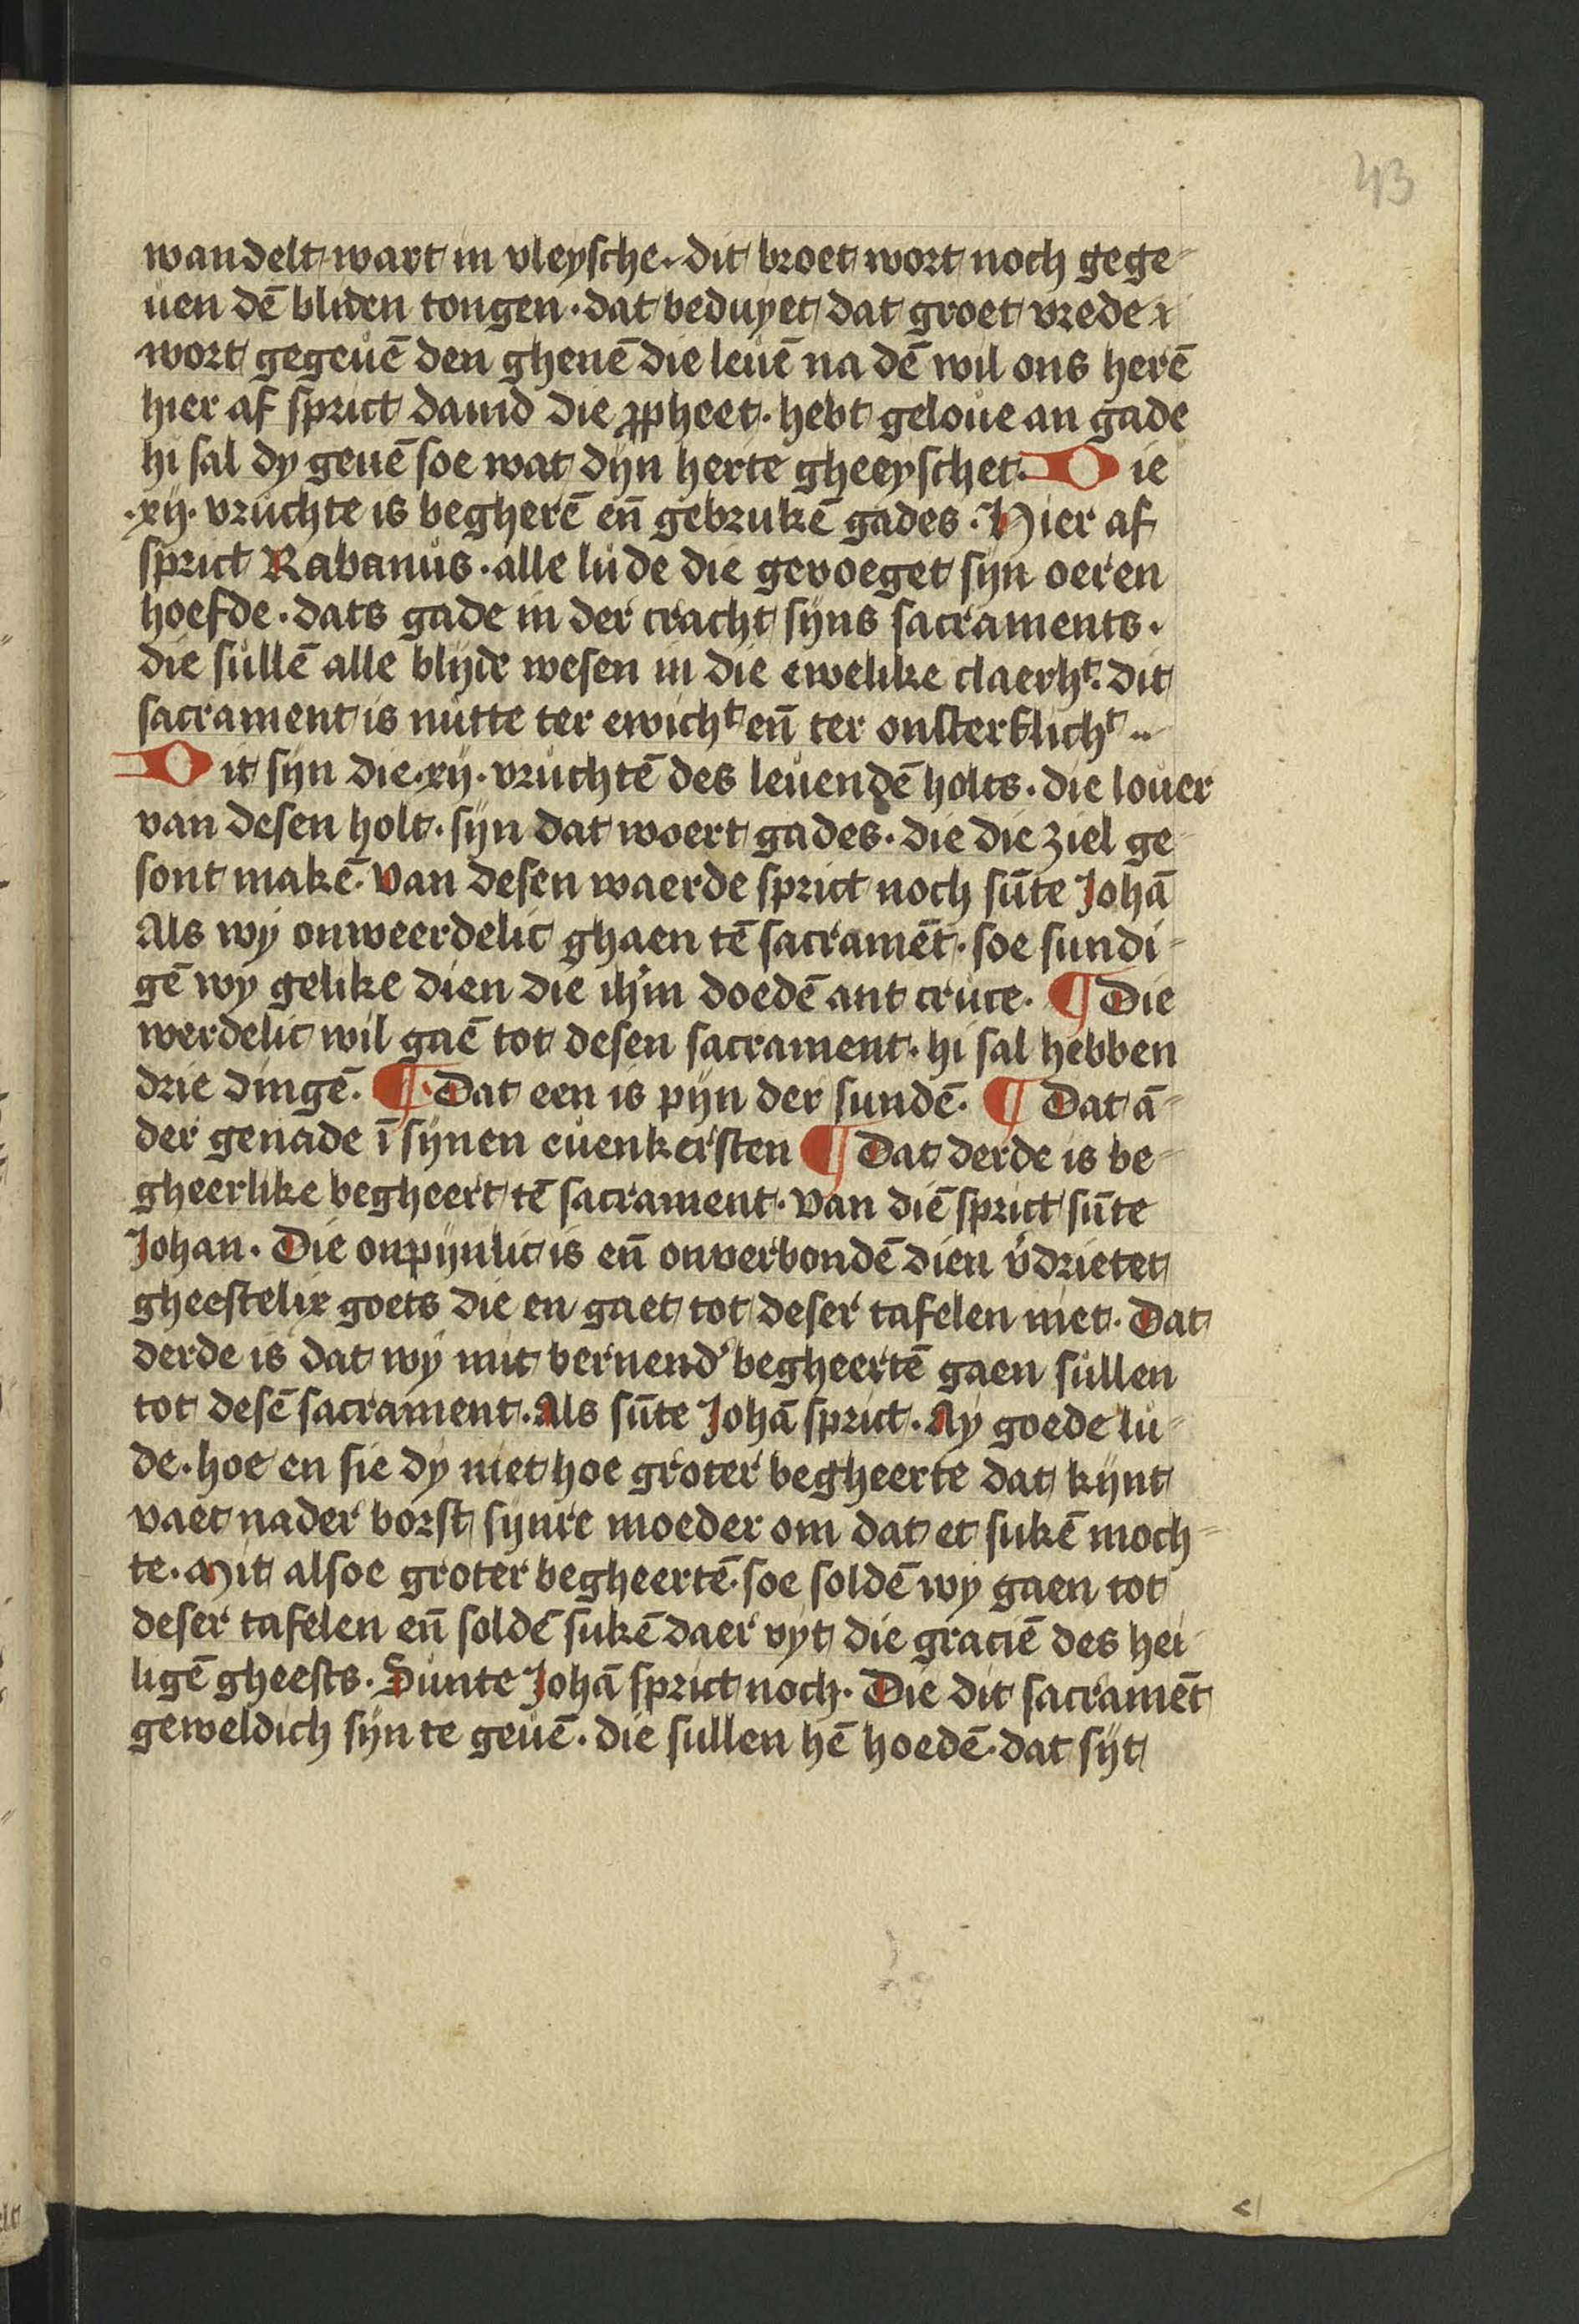 43
wandelt wart in vleysche. dit broet wort noch gege-
uen dē bliden tongen. dat beduyet dat groet vrede
wort gegeuē den ghenē die leuē na dē wil ons herē
hier af sprict dauid die ꝓpheet. hebt geloue an gade
hi sal dy geuē soe wat dyn herte gheeyschet. Die
.xij. vruchte is begherē eñ gebrukē gades. Hier af
sprict Rabanus. alle lude die gevoeget sijn oeren
hoefde. dats gade in der cracht sijns sacraments.
die sullē alle blyde wesen in die ewelike claerhᵗ. dit
sacrament is nutte ter ewichᵗ eñ ter onsterflichᵗ..
Dit sijn die .xij. vruchtē des leuendē holts. die louer
van desen holt. sijn dat woert gades. die die ziel ge-
sont makē. Van desen waerde sprict noch sūte Johā
Als wy onweerdelic ghaen tē sacramēt. soe sundi-
gē wy gelike dien die ih'm doedē ant cruce. ¶ Die
werdelic wil gaē tot desen sacrament. hi sal hebben
drie dingē. ¶ Dat een is pijn der sundē. ¶ Dat ā-
der genade ī sijnen euenkersten ¶ Dat derde is be-
gheerlike begheert tē sacrament. Van diē sprict sūte
Johan. Die onpijnlic is eñ onverbondē dien v'drietet
gheestelix goets die en gaet tot deser tafelen niet. Dat
derde is dat wy mit bernend' begheertē gaen sullen
tot desē sacrament. Als sūte Johā sprict. Ay goede lu-
de. hoe en sie dy niet hoe groter begheerte dat kijnt
vaet nader borst sijnre moeder om dat et sukē moch-
te. Mit alsoe groter begheertē. soe soldē wy gaen tot
deser tafelen eñ soldē sukē daer vyt die graciē des hei-
ligē gheests. Sunte Johā sprict noch. Die dit sacramēt
geweldich sijn te geuē. die sullen hē hoedē. dat sijt